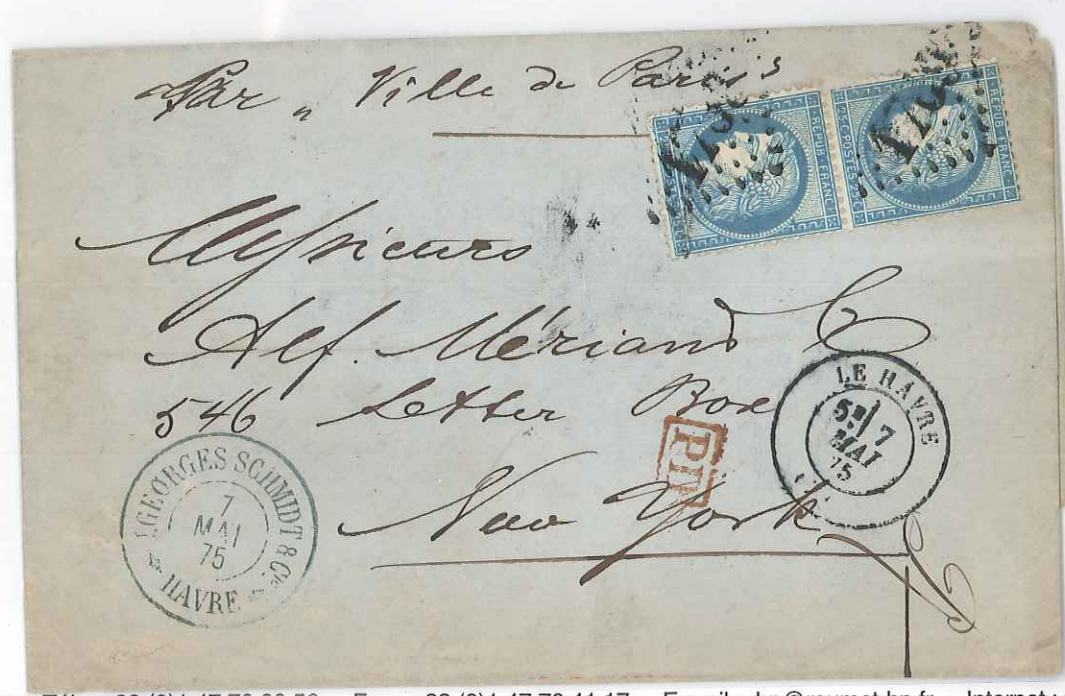 Par „ Ville de Paris"
REPUB. FRANC.
25 C. POSTES 25 C.
REPUB. FRANC.
25 C. POSTES 25 C.
Messieurs
Alf. Mériand Co
546 Letter Box
New York
PD
LE HAVRE
5E 7
MAI
75
J.GEORGES SCHMIDT & Cie
7
MAI
75
HAVRE
E-mail
Internet :